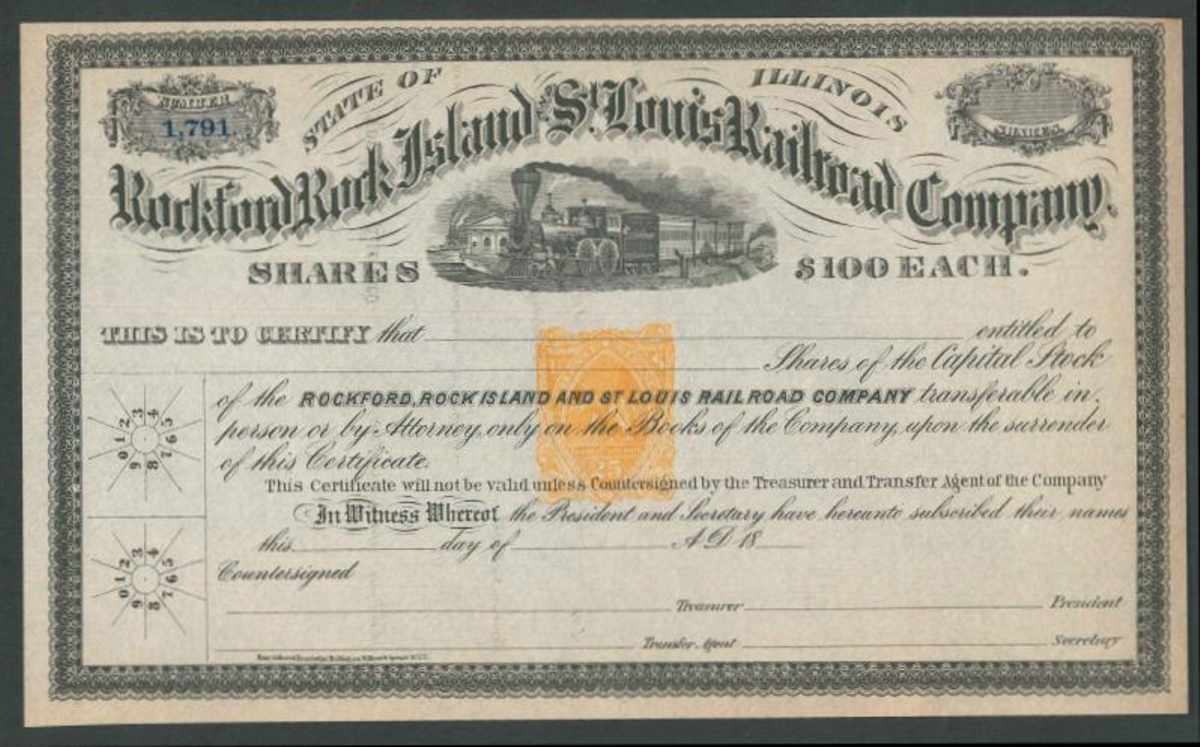 NUMBER
1,791
STATE OF ILLINOIS
SHARES
Rockford Rock Island AND St. Louis Railroad Company.
SHARES $100 EACH.
THIS IS TO CERTIFY that entitled to
Shares of the Capital Stock
of the ROCKFORD, ROCK ISLAND AND ST LOUIS RAILROAD COMPANY transferable in
person or by Attorney, only on the Books of the Company, upon the surrender
of this Certificate.
25
This Certificate will not be valid unless Countersigned by the Treasurer and Transfer Agent of the Company
In Witness Whereof the President and Secretary have hereunto subscribed their names
this day of A D 18
0 1 2 3 4 5 6 7 8 9
0 1 2 3 4 5 6 7 8 9
Countersigned
Treasurer President
Transfer Agent Secretary